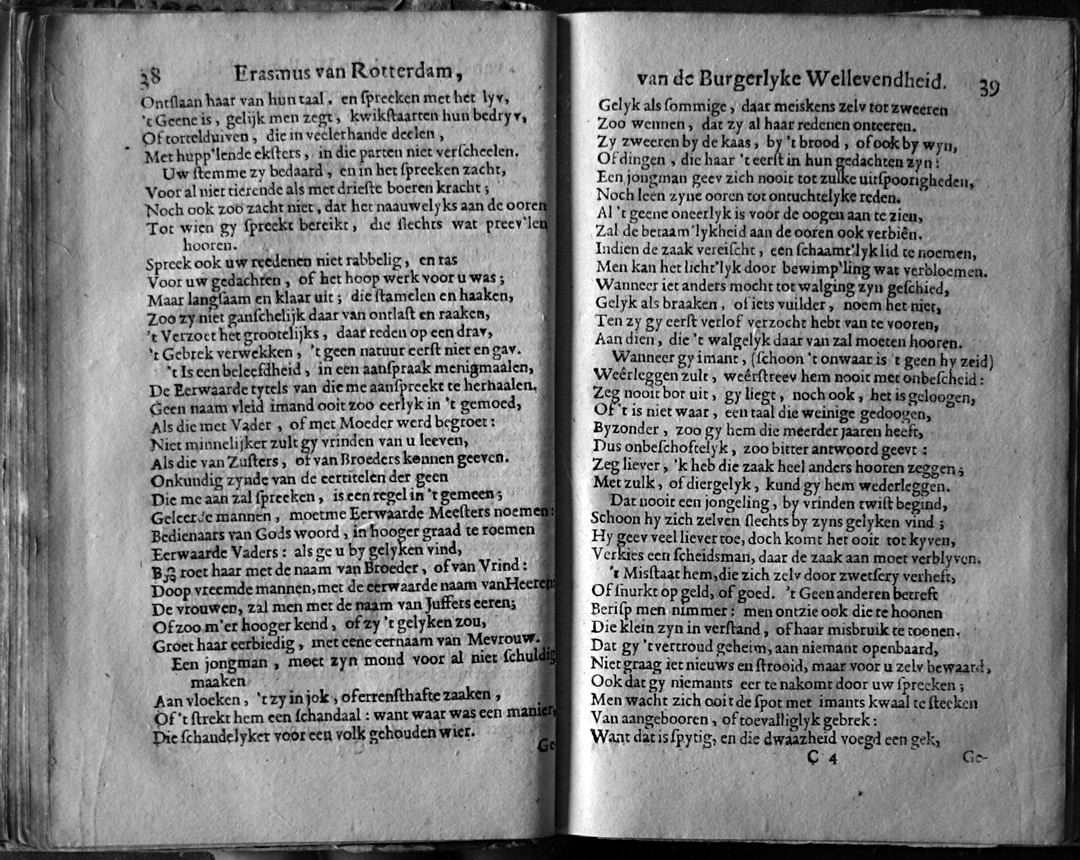 38 Erasmus van Rotterdam,
Ontſlaan haar van hun taal, en ſpreeken met het lyv,
't Geene is, gelijk men zegt, kwikſtaarten hun bedryv,
Of torrelduiven, die in veelerhande deelen,
Met hupp'lende ekſters, in die parten niet verſcheelen.
Uw ſtemme zy bedaard, en in het ſpreeken zacht,
Voor al niet tierende als met drieſte boeren kracht;
Noch ook zoo zacht niet, dat het naauwelyks aan de ooren
Tot wien gy ſpreekt bereikt, die ſlechts wat preev'len
hooren.
Spreek ook uw reedenen niet rabbelig, en ras
Voor uw gedachten, of het hoop werk voor u was;
Maar langſaam en klaar uit; die ſtamelen en haaken,
Zoo zy niet ganſchelijk daar van ontlaſt en raaken,
't Verzoet het grootelijks, daar reden op een drav,
't Gebrek verwekken, 't geen natuur eerſt niet en gav.
't Is een beleefdheid, in een aanſpraak menigmaalen,
De Eerwaarde tytels van die me aanſpreekt te herhaalen.
Geen naam vleid imand ooit zoo eerlyk in 't gemoed,
Als die met Vader, of met Moeder werd begroet:
Niet minnelijker zult gy vrinden van u leeven,
Als die van Zuſters, of van Broeders konnen geeven.
Onkundig zynde van de eertitelen der geen
Die me aan zal ſpreeken, is een regel in 't gemeen;
Geleerde mannen, moetme Eerwaarde Meeſters noemen:
Bedienaars van Gods woord, in hooger graad te roemen
Eerwaarde Vaders: als ge u by gelyken vind,
Begroet haar met de naam van Broeder, of van Vrind:
Doop vreemde mannen, met de eerwaarde naam van Heeren
De vrouwen, zal men met de naam van Juffers eeren;
Of zoo m'er hooger kend, of zy 't gelyken zou,
Groet haar eerbiedig, met eene eernaam van Mevrouw.
Een jongman, moet zyn mond voor al niet ſchuldig
maaken
Aan vloeken, 't zy in jok, of errenſthafte zaaken,
Of 't ſtrekt hem een ſchandaal: want waar was een manier,
Die ſchandelyker voor een volk gehouden wier.
Ge
van de Burgerlyke Wellevendheid. 39
Gelyk als ſommige, daar meiskens zelv tot zweeren
Zoo wennen, dat zy al haar redenen onteeren.
Zy zweeren by de kaas, by 't brood, of ook by wyn,
Of dingen, die haar 't eerſt in hun gedachten zyn:
Een jongman geev zich nooit tot zulke uitſpoorigheden,
Noch leen zyne ooren tot ontuchtelyke reden.
Al 't geene oneerlyk is voor de oogen aan te zien,
Zal de betaam'lykheid aan de ooren ook verbiên.
Indien de zaak vereiſcht, een ſchaamt'lyk lid te noemen,
Men kan het licht'lyk door bewimp'ling wat verbloemen.
Wanneer iet anders mocht tot walging zyn geſchied,
Gelyk als braaken, of iets vuilder, noem het niet,
Ten zy gy eerſt verlof verzocht hebt van te vooren,
Aan dien, die 't walgelyk daar van zal moeten hooren.
Wanneer gy imant, (ſchoon 't onwaar is 't geen hy zeid)
Weêrleggen zult, weêrſtreev hem nooit met onbeſcheid:
Zeg nooit bot uit, gy liegt, noch ook, het is geloogen,
Of 't is niet waar, een taal die weinige gedoogen,
Byzonder, zoo gy hem die meerder jaaren heeft,
Dus onbeſchoftelyk, zoo bitter antwoord geevt:
Zeg liever, 'k heb die zaak heel anders hooren zeggen;
Met zulk, of diergelyk, kund gy hem wederleggen.
Dat nooit een jongeling, by vrinden twiſt begind,
Schoon hy zich zelven ſlechts by zyns gelyken vind;
Hy geev veel liever toe, doch komt het ooit tot kyven,
Verkies een ſcheidsman, daar de zaak aan moet verblyven.
't Misſtaat hem, die zich zelv door zwetſery verheft,
Of ſnurkt op geld, of goed. 't Geen anderen betreft
Beriſp men nimmer: men ontzie ook die te hoonen
Die klein zyn in verſtand, of haar misbruik te toonen.
Dat gy 't vertroud geheim, aan niemant openbaard,
Niet graag iet nieuws en ſtrooid, maar voor u zelv bewaard,
Ook dat gy niemants eer te na komt door uw ſpreeken;
Men wacht zich ooit de ſpot met imants kwaal te ſteeken
Van aangebooren, of toevalliglyk gebrek:
Want dat is ſpytig, en die dwaazheid voegd een gek,
C 4 Ge-